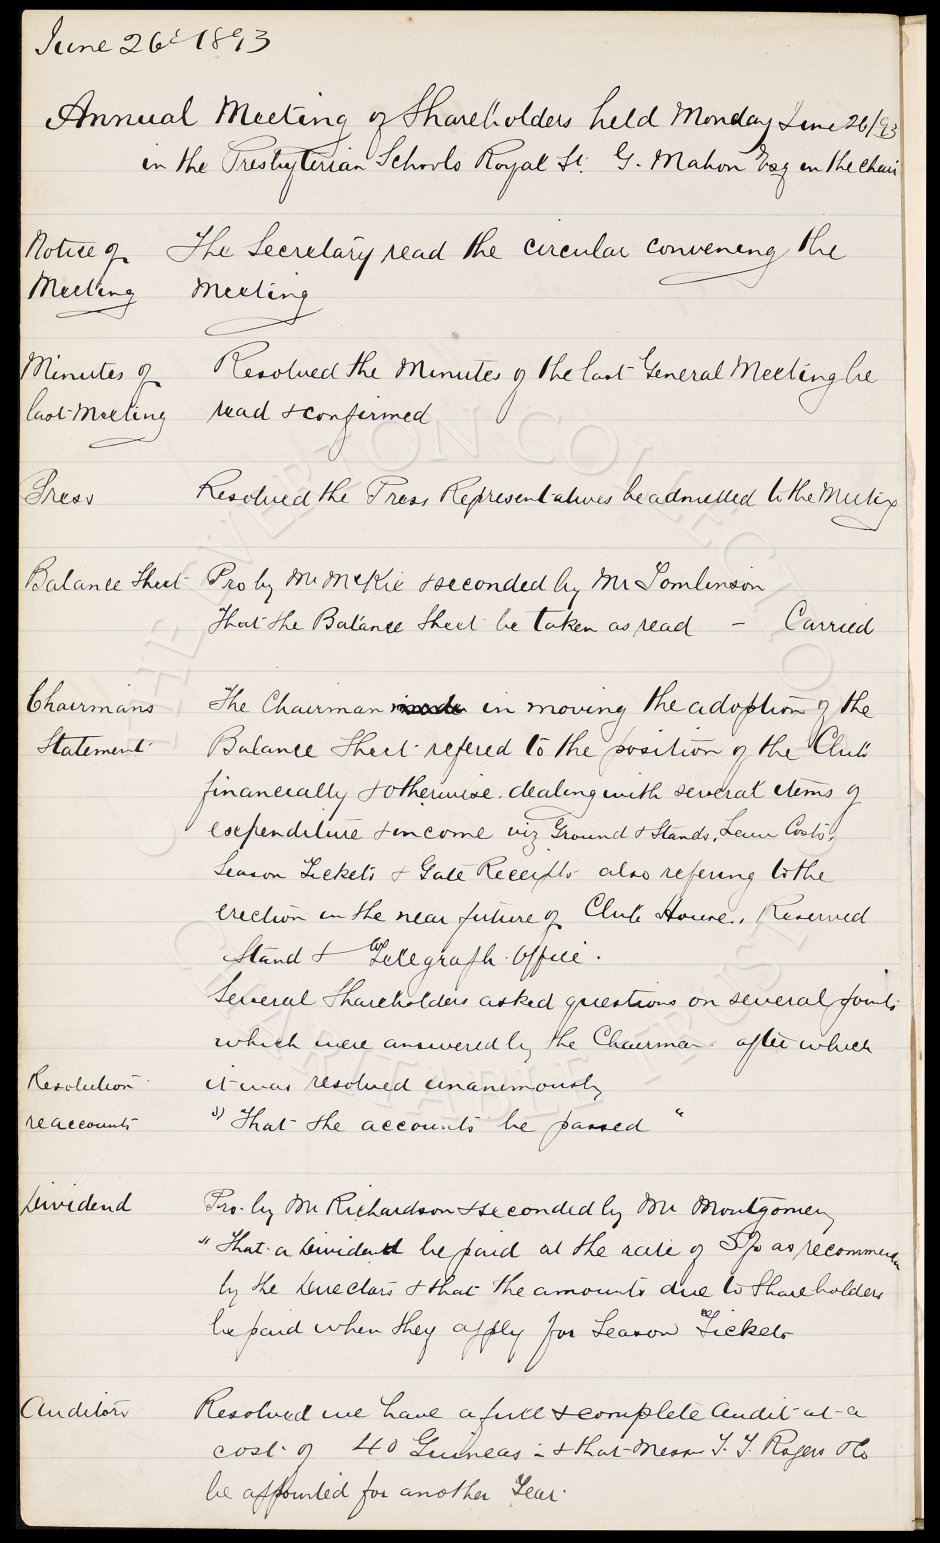 June 26th 1893
Annual Meeting of Shareholders held Monday June 26/93
in the Presbyterian Schools Royal St. G. Mahon Esq in the Chair
Notice of The Secretary read the circular convening the
Meeting Meeting
Minutes of Resolved the Minutes of the last General Meeting be
last Meeting read & confirmed
Press Resolved the Press Representatives be admitted to the Meeting
Balance Sheet Pro by Mr McKie & seconded by Mr Tomlinson
That the Balance Sheet be taken as read - Carried
Chairmans The Chairman in moving the adoption of the
Statement Balance Sheet refered to the position of the Club
financially & otherwise. dealing with several items of
expenditure & income viz Ground & Stands, Law Costs,
Season Tickets & Gate Receipts also refering to the
erection in the near future of Club House, Reserved
Stand & Telegraph Office.
Several Shareholders asked questions on several points
which were answered by the Chairman after which
Resolution it was resolved unanimously
re accounts "That the accounts be passed"
Dividend Pro. by Mr Richardson & seconded by Mr Montgomery
"That a Dividend be paid at the rate of 5% as recommended
by the Directors & that the amounts due to Shareholders
be paid when they apply for Season Tickets
Auditors Resolved we have a full & complete Audit at a
cost of 40 Guineas - & that Messrs T. J. Rogers & Co
be appointed for another Year.
THE EVERTON COLLECTION
CHARITABLE TRUST